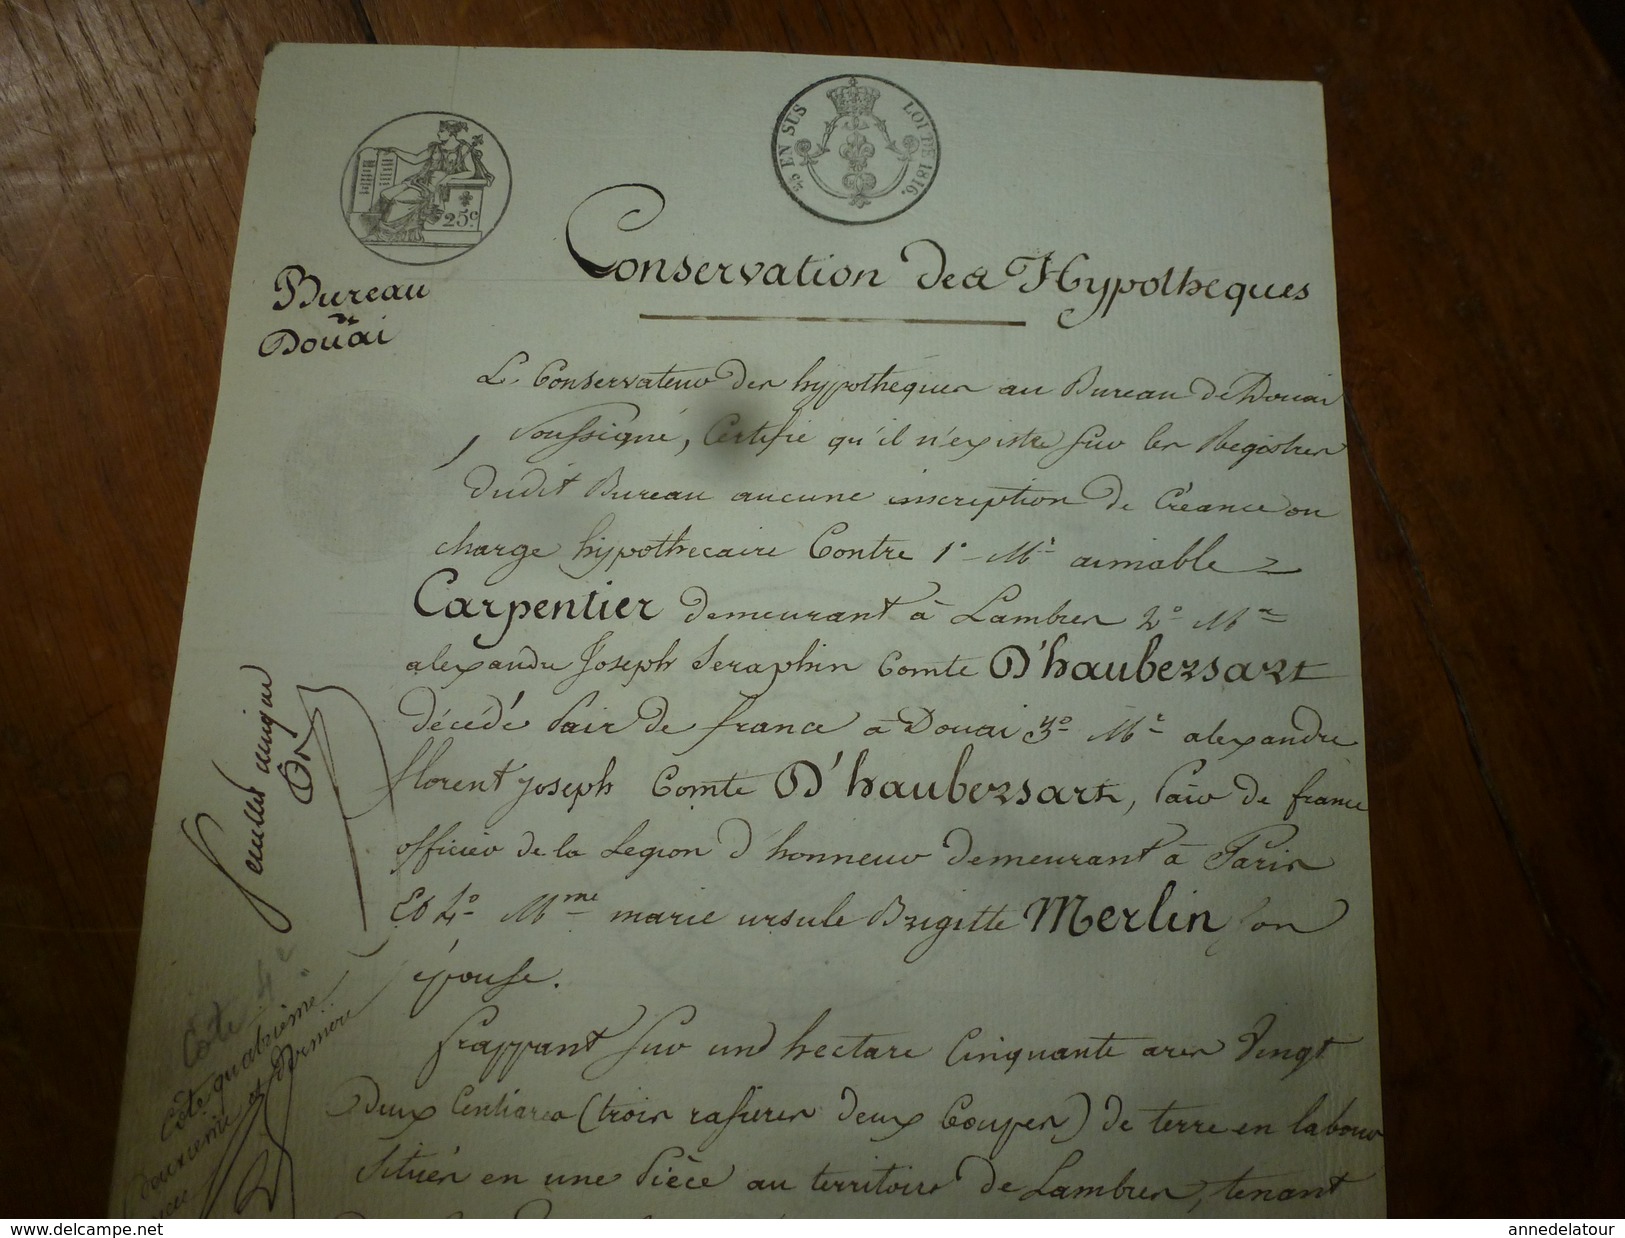 25c.
¼ EN SUS LOI DE 1816.
Bureau
de
Douai
Conservation des Hypotheques
Le Conservateur des hypothèques au Bureau de Douai
soussigné, Certifie qu'il n'existe sur les Registres
dudit Bureau aucune inscription de Créance ou
charge hypothecaire Contre 1° Mr aimable
Carpentier demeurant à Lambres 2° Mr
alexandre Joseph Seraphin Comte D'haubersart
décédé Pair de france à Douai 3° Mr alexandre
florent Joseph Comte D'haubersart, Pair de france
officier de la Legion d'honneur demeurant à Paris
Et 4° Mme marie ursule Brigitte Merlin son
épouse.
frappant sur und hectare Cinquante ares Vingt
deux Centiares (trois rasieres deux Coupes) de terre en labour
situées en une Pièce au territoire de Lambres, tenant
feuillet unique
Cote 4e
Côte quatrième
et dernière
delcampe.net
annedelatour